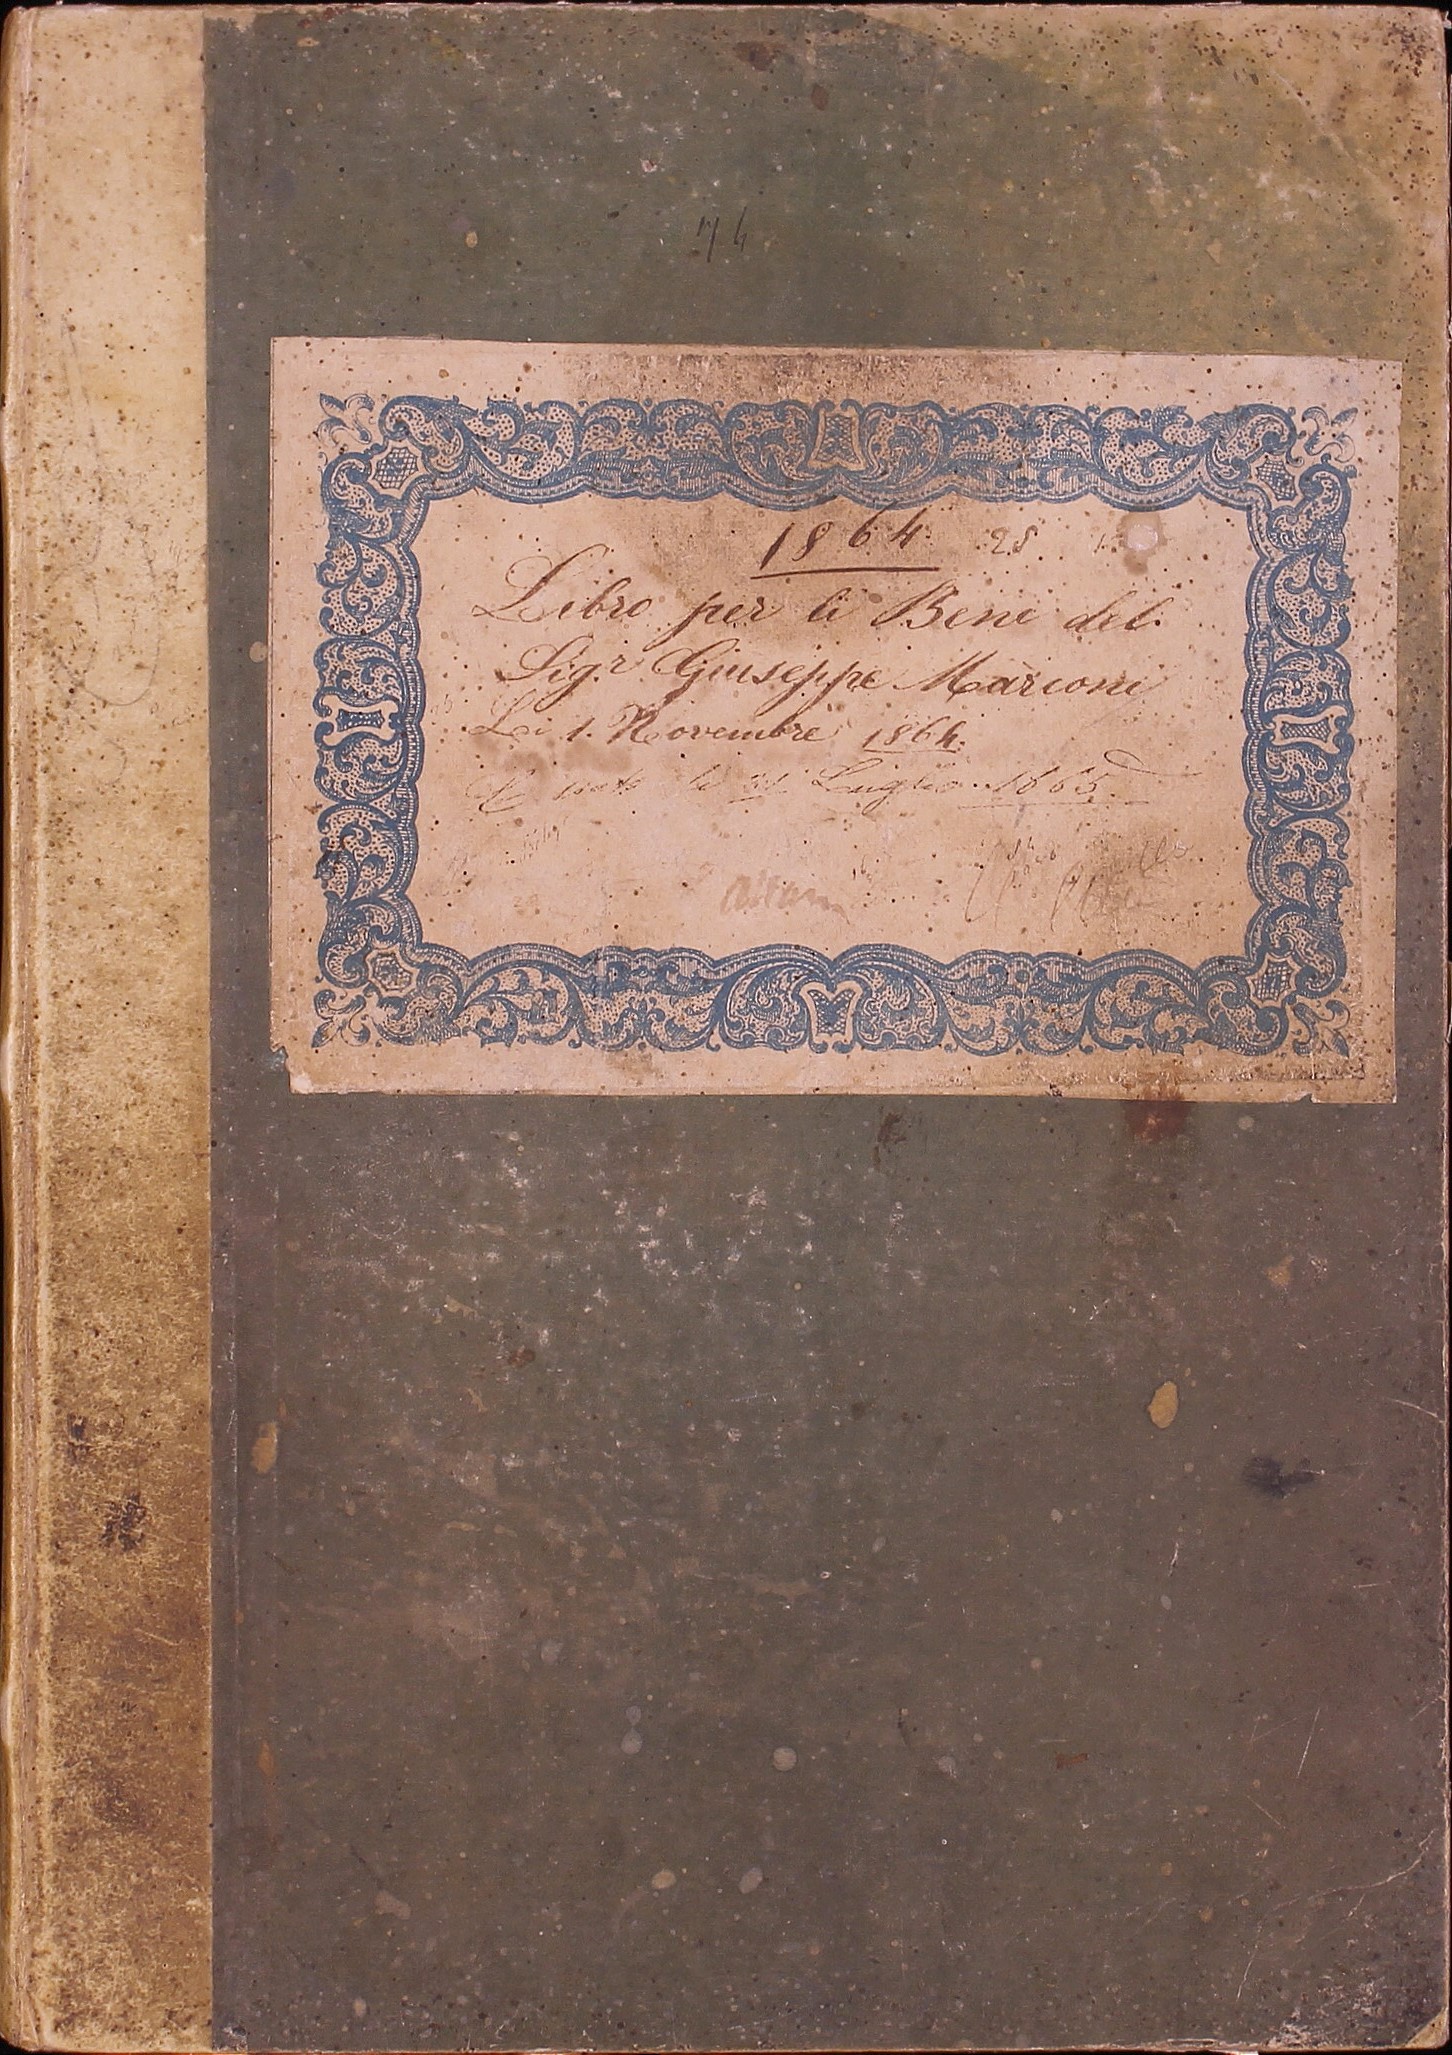 74
1864. 28
Libro per li Beni del
Sigr. Giuseppe Marconi
Li 1. Novembre 1864.
li 31 Luglio 1865.